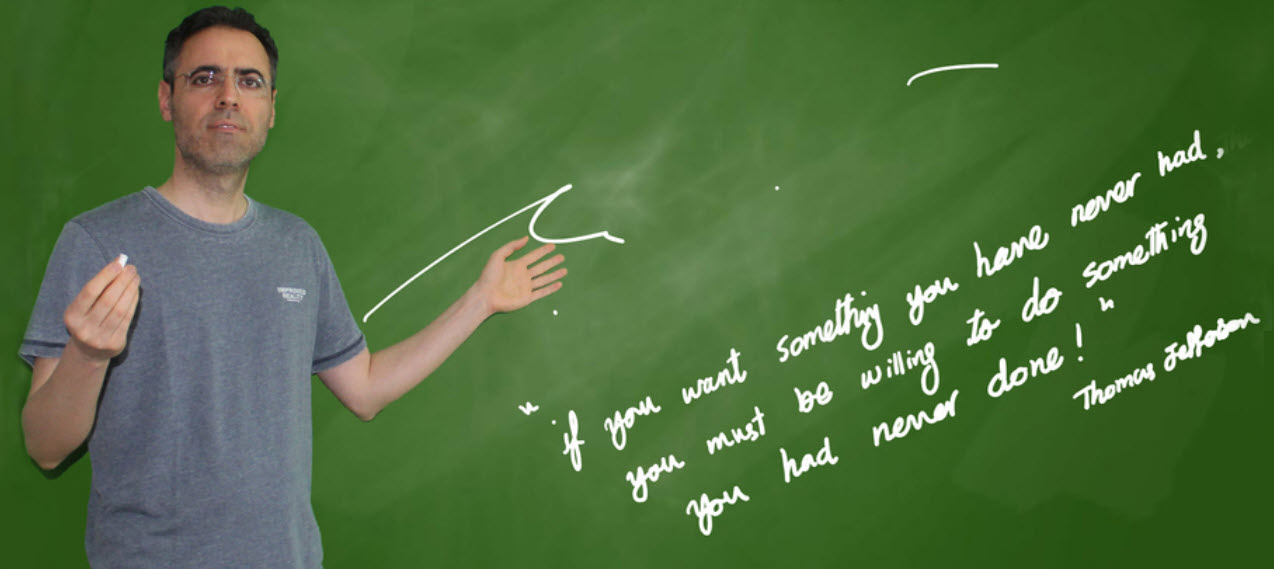 REALITY
"if you want something you have never had,
you must be willing to do something
you had never done!"
Thomas Jefferson